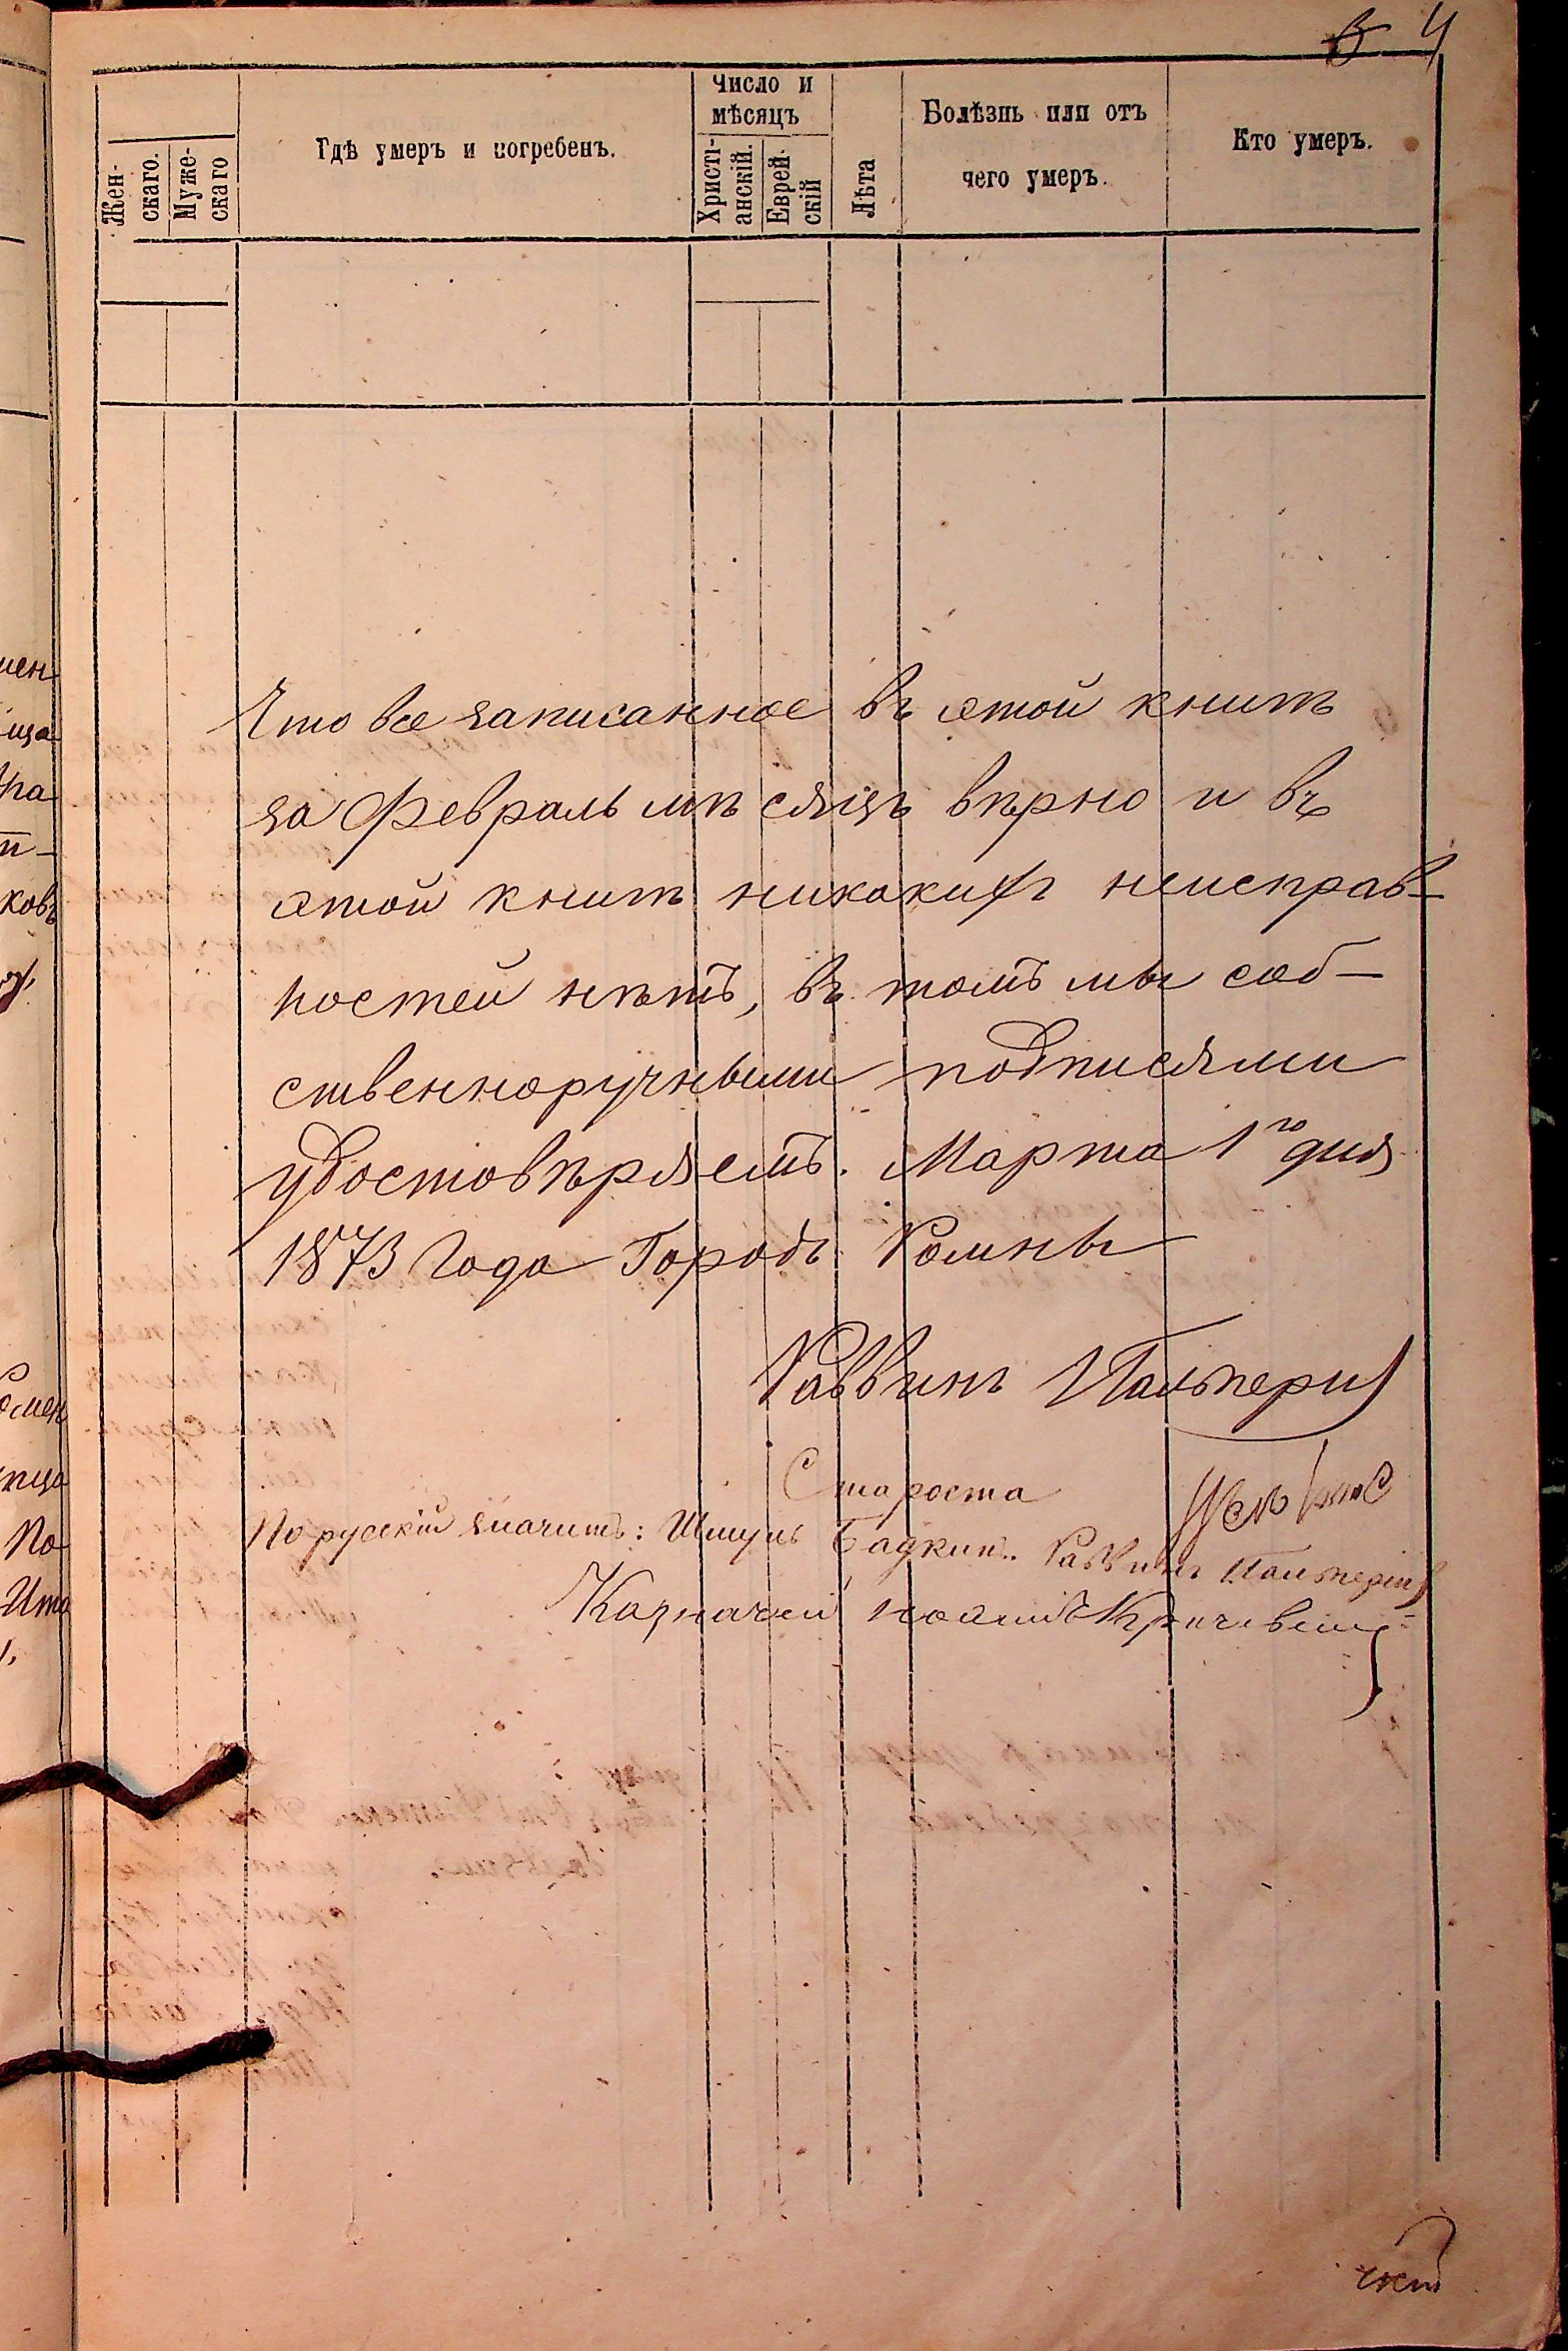 4
Жен-
скаго.
Муже-
скаго
Гдѣ умеръ и погребенъ.
Число и
мѣсяцъ
Христі-
анскій.
Еврей-
скій
Лѣта
Болѣзнь или отъ
чего умеръ.
Кто умеръ.
Что все записанное въ этой книгѣ
за Февраль мѣсяцъ вѣрно и въ
этой книгѣ никакихъ неисправ-
ностей нѣтъ, въ томъ мы соб-
ственноручными подписями
удостовѣряемъ. Марта 1го дня
1873 Года Городъ Ромны
Раввинъ Пальтеринъ
Староста
По русскій значитъ: Шмуль Раввинъ Пальтеринъ
Казначей